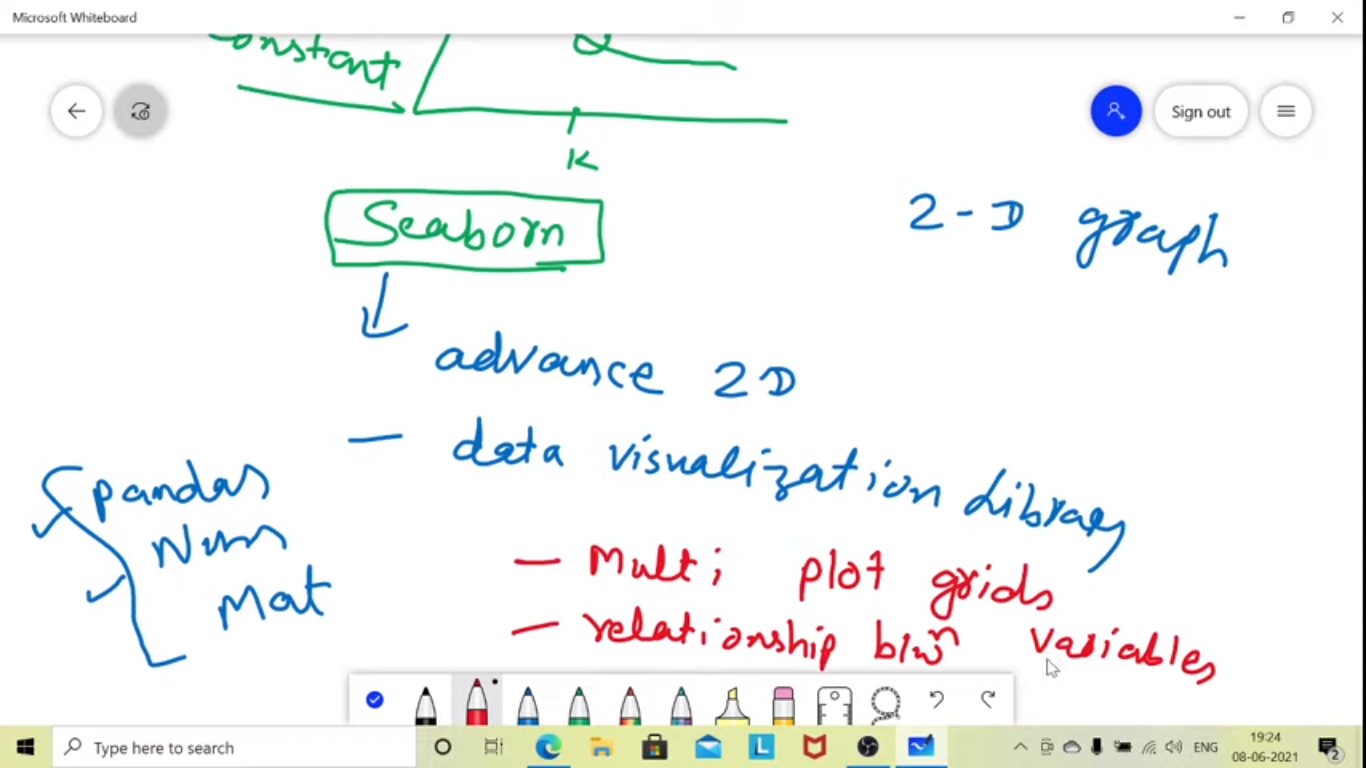 Microsoft Whiteboard
Constant
K
Sign out
Seaborn
2-D graph
advance 2D
— data visualization Library
pandas
Num
Mat
— Multi plot grids
— relationship b/wn variables
Type here to search
ENG
19:24
08-06-2021
2